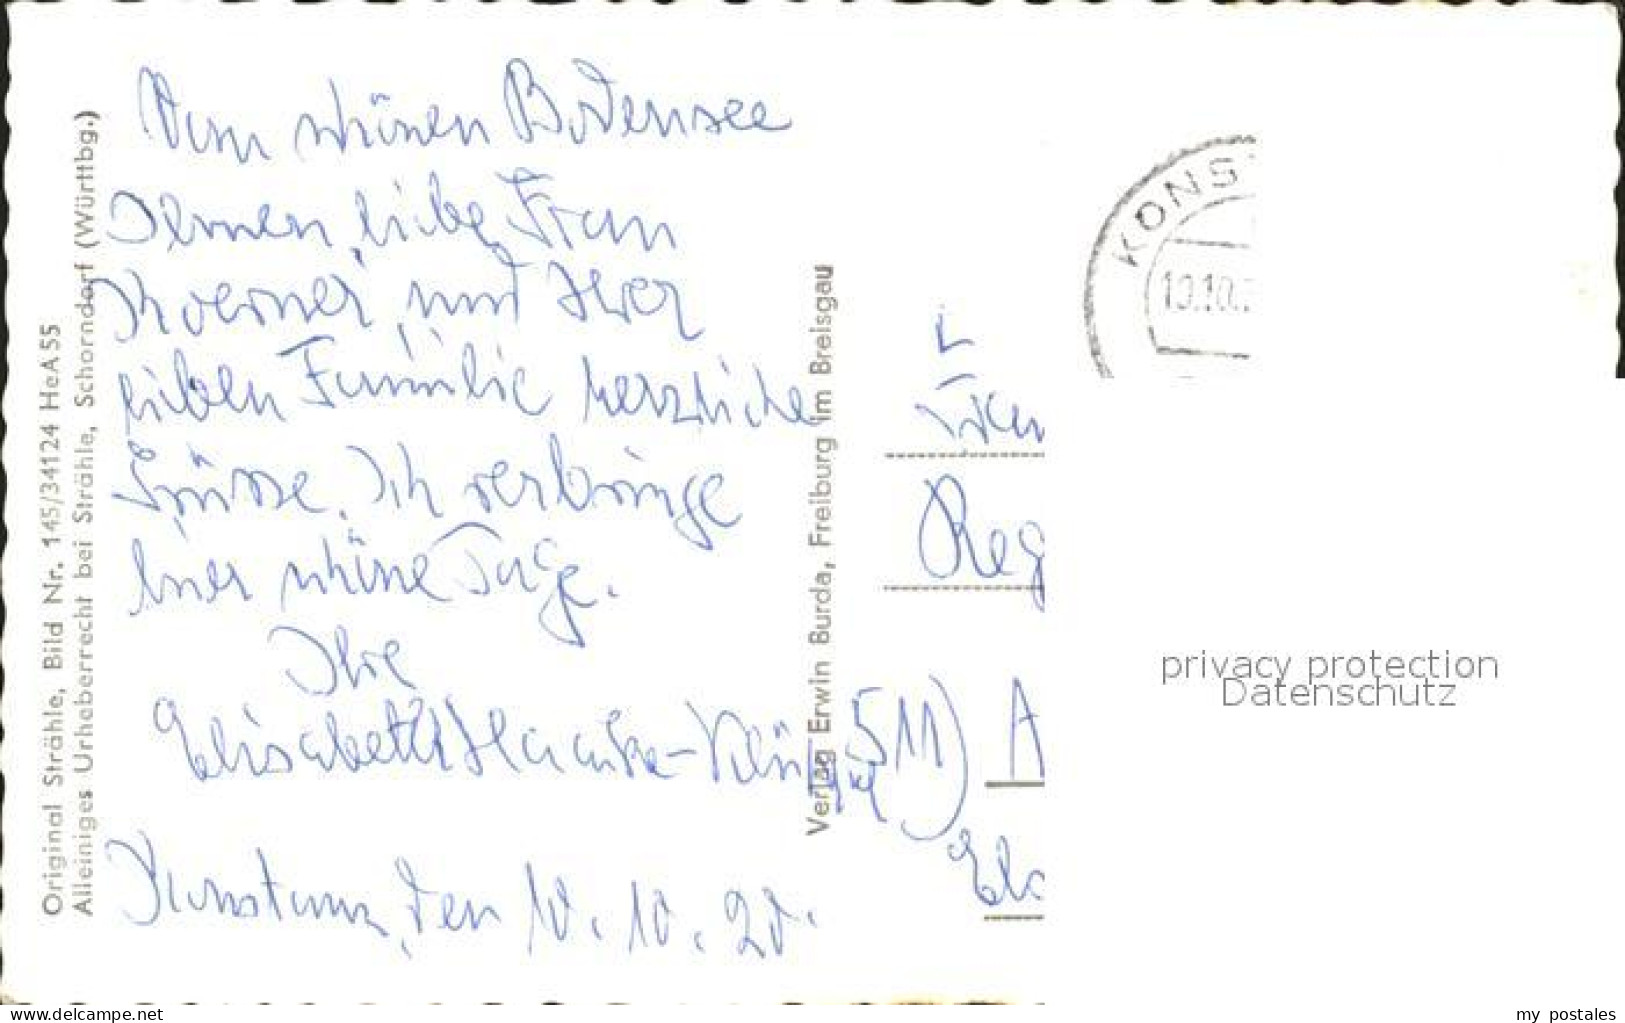 Original Strähle, Bild Nr. 145/34124 HeA55
Alleiniges Urheberrecht bei Strähle, Schorndorf (Württbg.)
Vom schönen Bodensee
Ihnen, liebe Frau
und Ihrer
lieben Familie herzliche
Grüsse. Ich verbringe
hier schöne Tage.
Ihre
Elisabeth
Konstanz, den 10.10.70.
Verlag Erwin Burda, Freiburg im Breisgau
KONS
10.10.
Reg
511)
A
privacy protection
Datenschutz
www.delcampe.net
my_postales